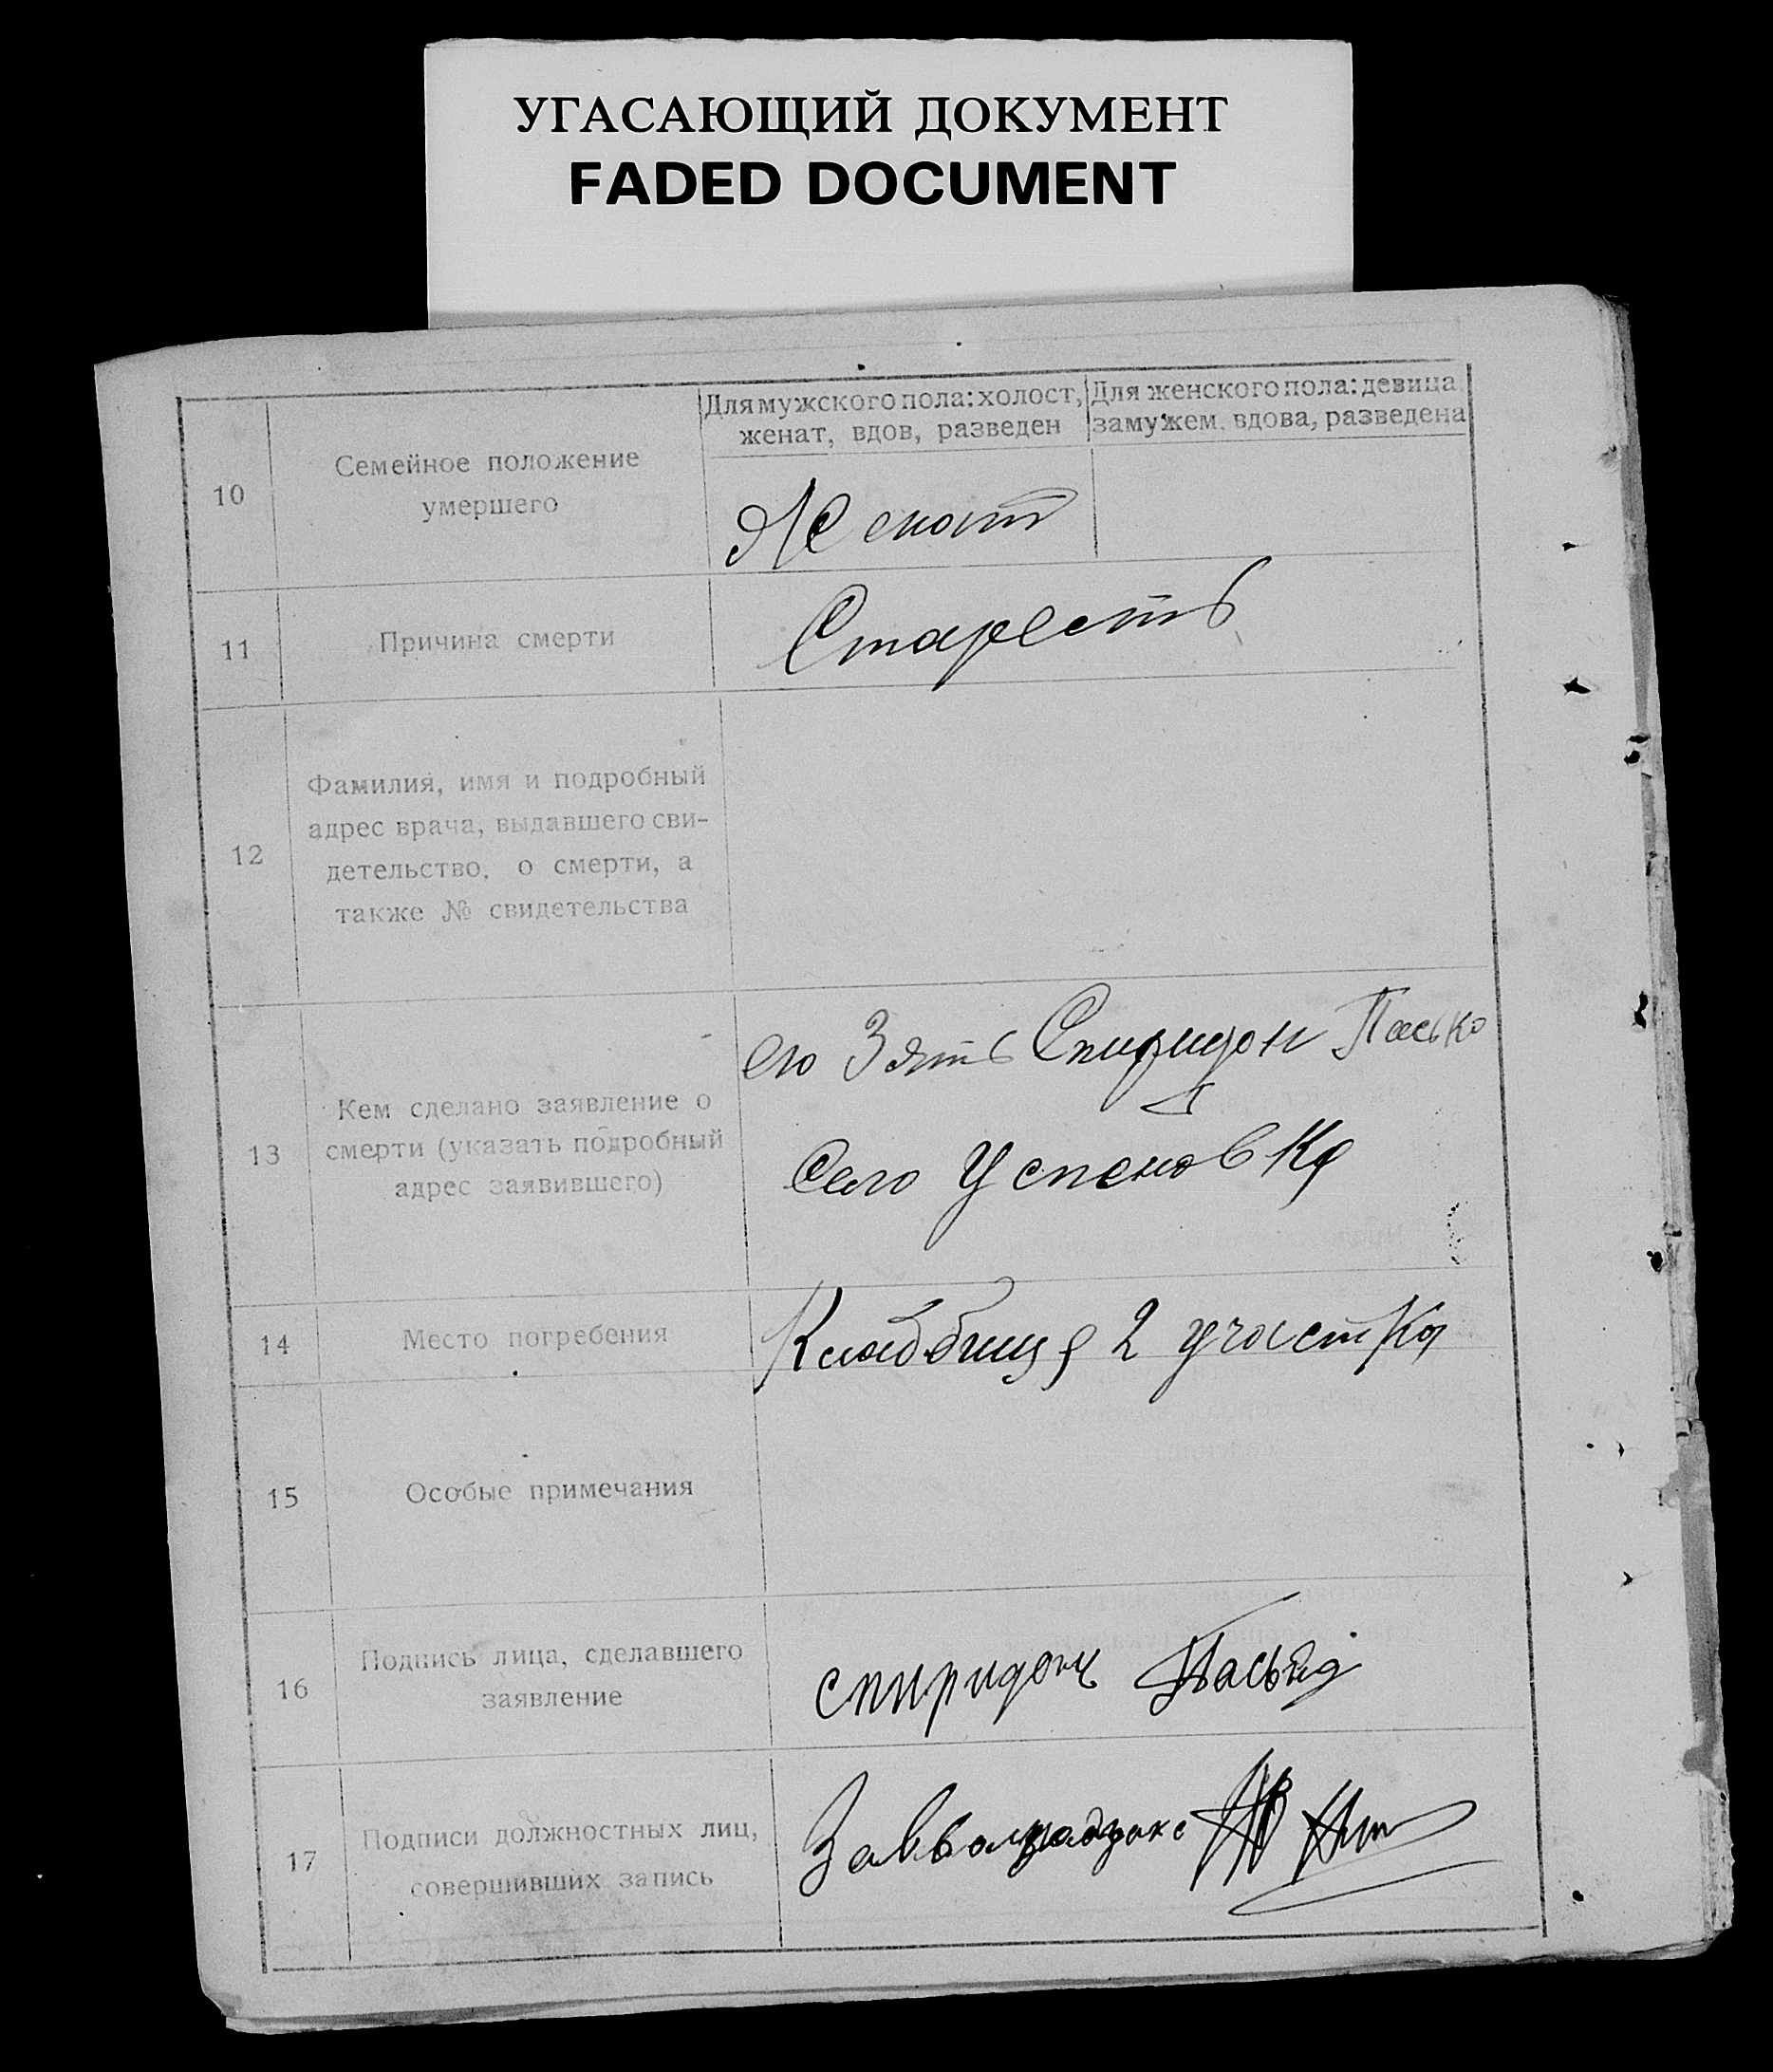 УГАСАЮЩИЙ ДОКУМЕНТ
FADED DOCUMENT
10
Семейное положение
умершего
Для мужского пола: холост,
женат, вдов, разведен
Для женского пола: девица
замужем, вдова, разведена
Женат
11
Причина смерти
Старость
12
Фамилия, имя и подробный
адрес врача, выдавшего сви-
детельство, о смерти, а
также № свидетельства
13
Кем сделано заявление о
смерти (указать подробный
адрес заявившего)
его Зять Спиридон Пасько
Село Успеновка
14
Место погребения
Кладбище 2 участка
15
Особые примечания
16
Подпись лица, сделавшего
заявление
спиридон Пасько
17
Подписи должностных лиц,
совершивших запись